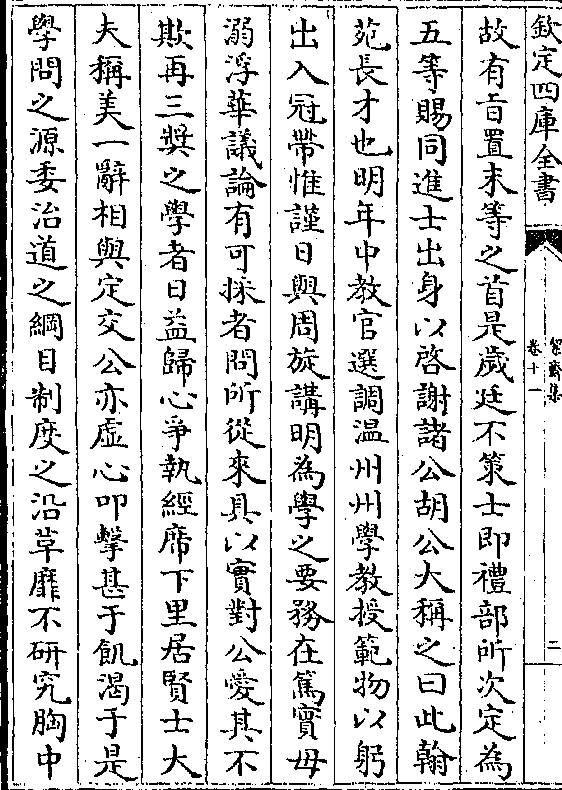 欽定四庫全書
絜齋集
卷十一
二
故有旨置末等之首是歲廷不策士即禮部所次定為
五等賜同進士出身以啓謝諸公胡公大稱之曰此翰
苑長才也明年中教官選調温州州學教授範物以躬
出入冠帶惟謹日與周旋講明為學之要務在篤實毋
溺浮華議論有可採者問所從來具以實對公愛其不
欺再三奬之學者日益歸心爭執經席下里居賢士大
夫稱美一辭相與定交公亦虛心叩擊甚于飢渴于是
學問之源委治道之綱目制度之沿革靡不研究胸中